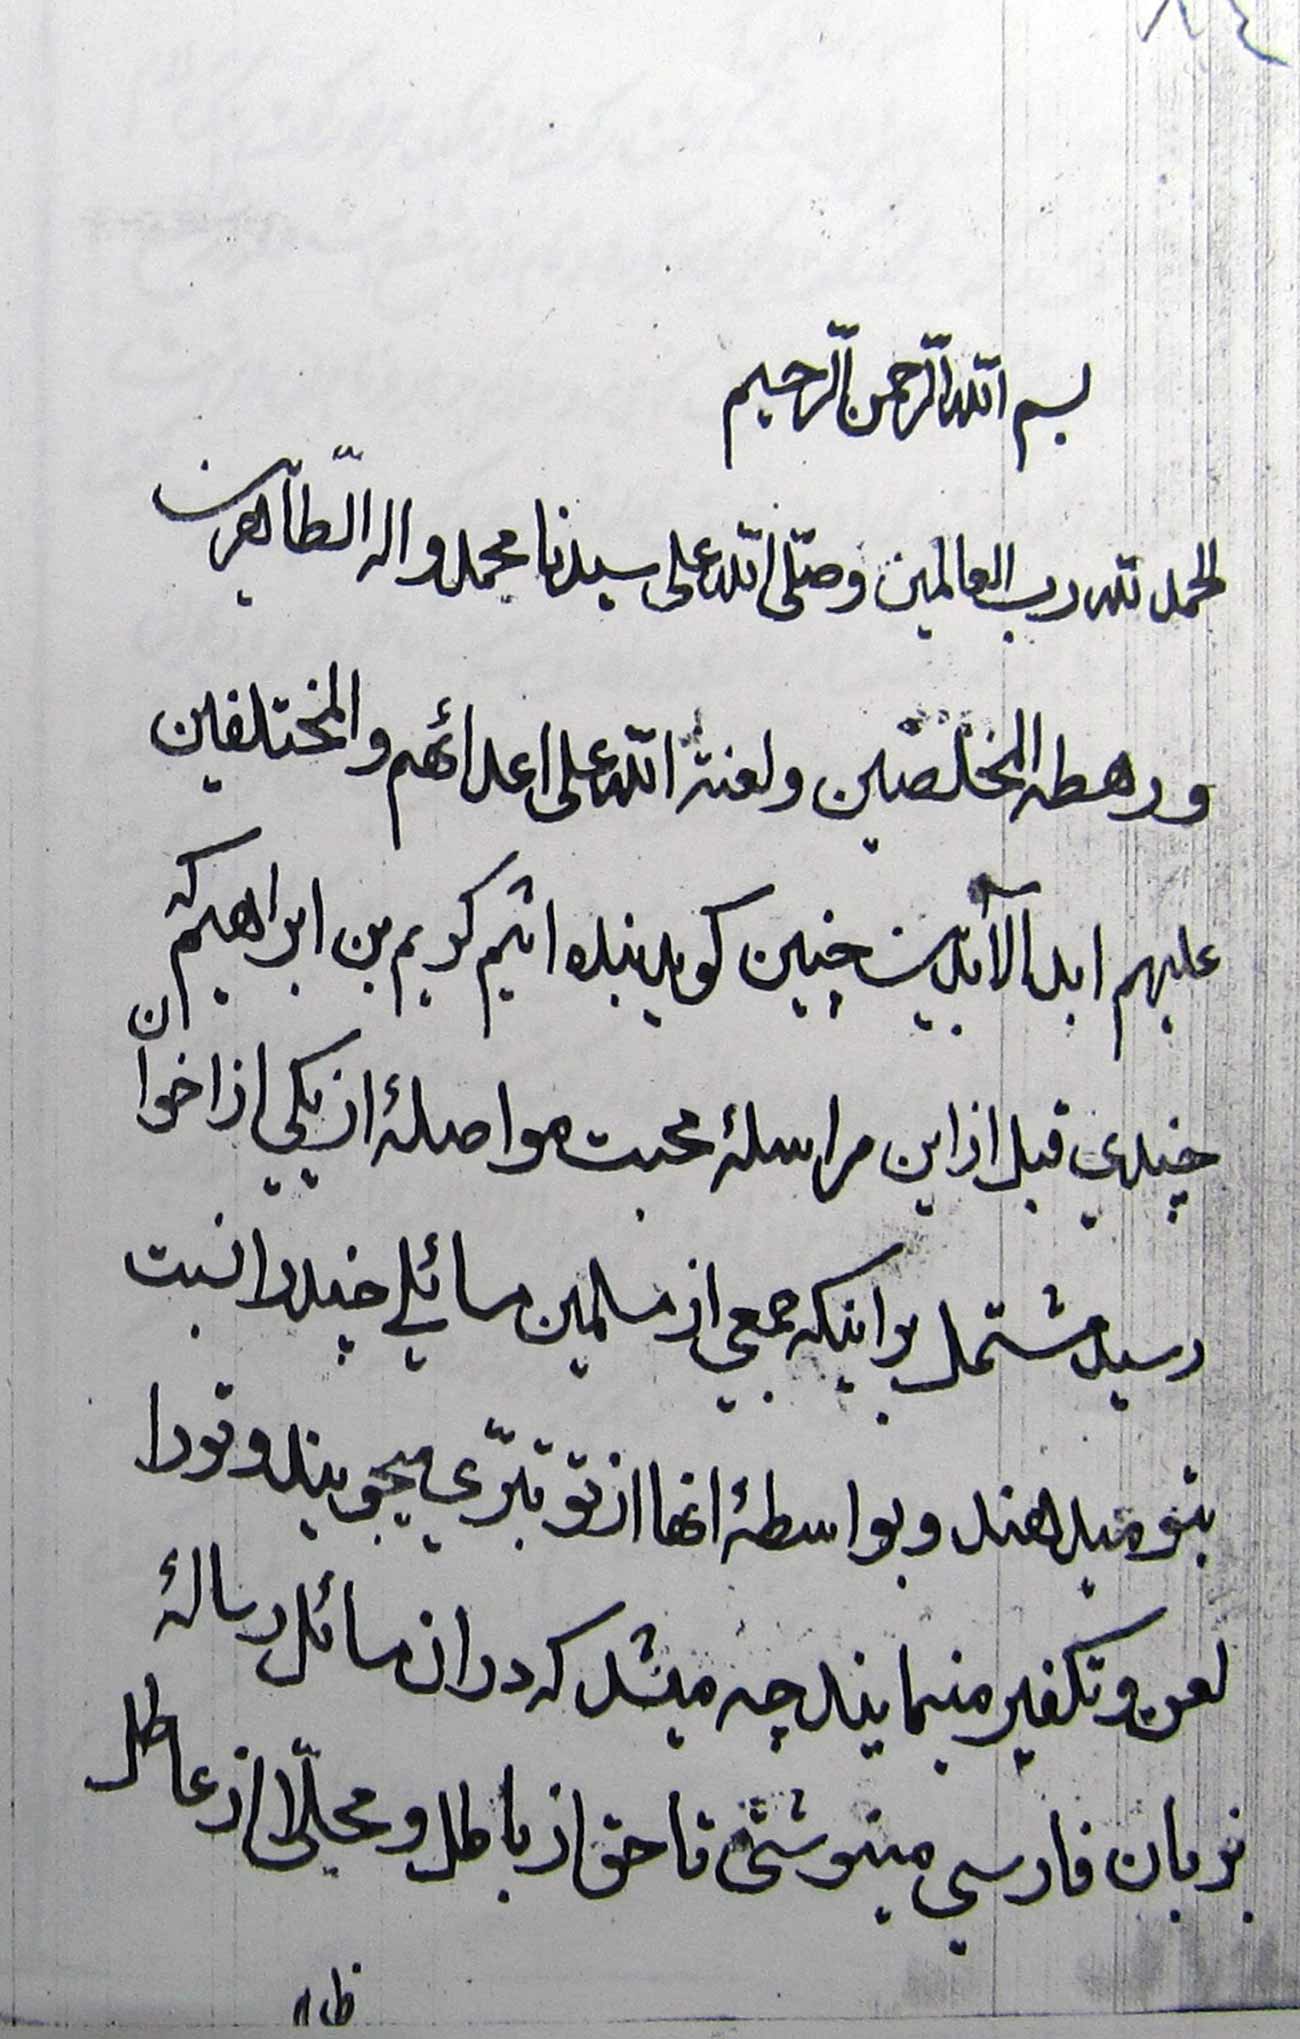 بسم الله الرّحمن الرّحیم
الحمد لله رب العالمین وصلّی الله علی سیدنا محمد و اله الطّاهرین
و رهطه المخلصین و لعنة الله علی اعدائهم و المختلفین
علیهم ابد الآبدین چنین کوید بنده اثیم کریم بن ابراهیم که
چندی قبل از این مراسلهٔ محبت مواصلهٔ از یکی از اخوان
رسید مشتمل بر اینکه جمعی از مسلمین مسائلی چند را نسبت
بتو میدهند و بواسطهٔ انها از تو تبرّی میجویند و تو را
لعن و تکفیر مینمایند چه میشد که در ان مسائل رسالهٔ
بزبان فارسی مینوشتی تا حق از باطل و محلّی از عاطل
ظاه